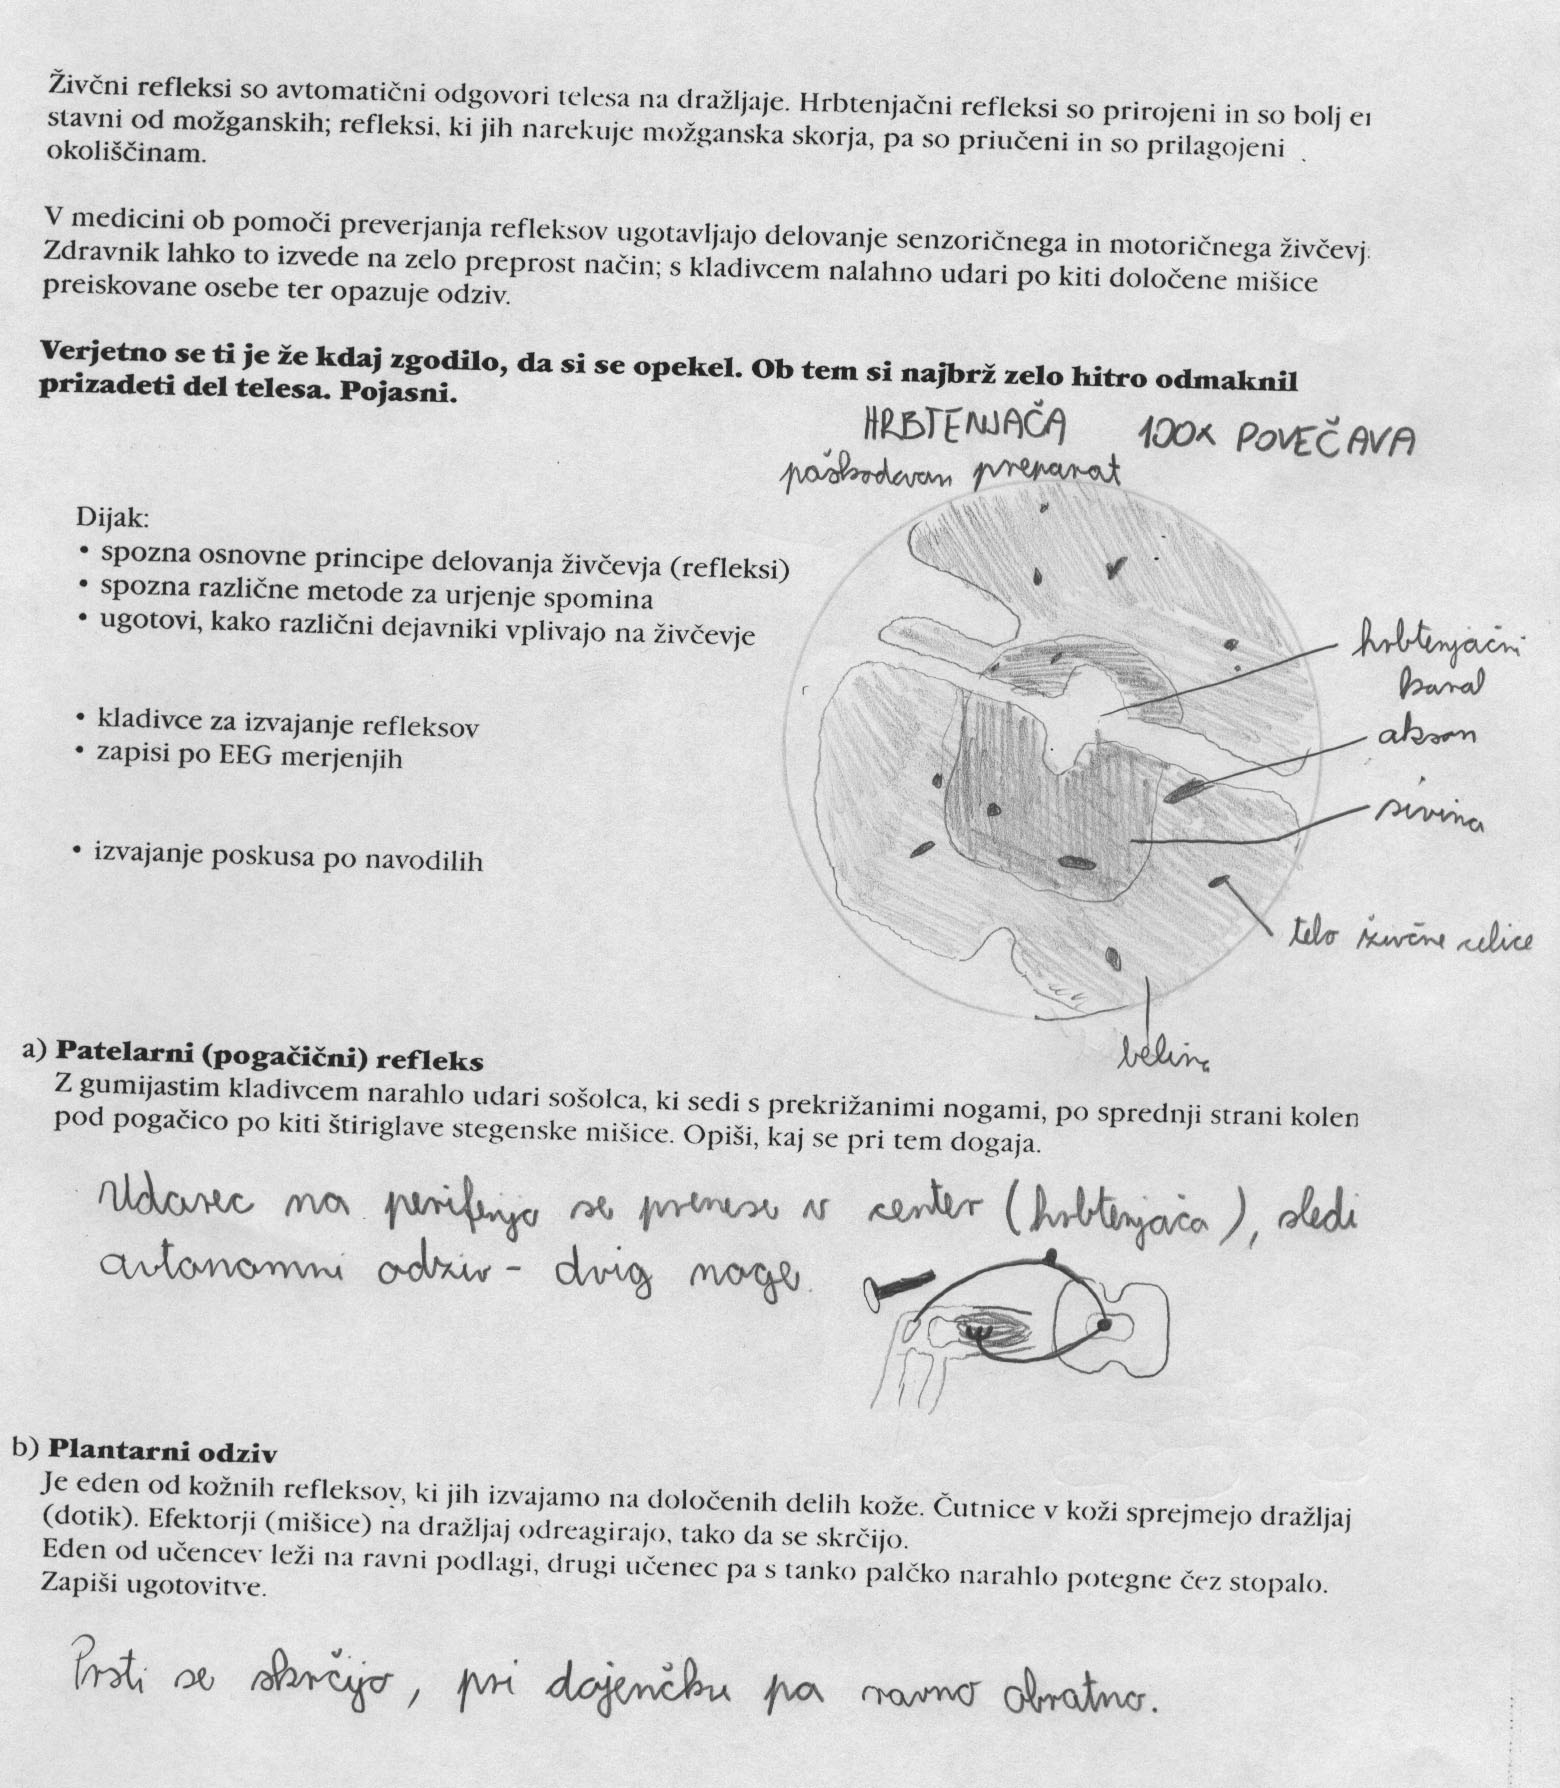 Živčni refleksi so avtomatični odgovori telesa na dražljaje. Hrbtenjačni refleksi so prirojeni in so bolj en
stavni od možganskih; refleksi, ki jih narekuje možganska skorja, pa so priučeni in so prilagojeni
okoliščinam.
V medicini ob pomoči preverjanja refleksov ugotavljajo delovanje senzoričnega in motoričnega živčevj
Zdravnik lahko to izvede na zelo preprost način; s kladivcem nalahno udari po kiti določene mišice
preiskovane osebe ter opazuje odziv.
Verjetno se ti je že kdaj zgodilo, da si se opekel. Ob tem si najbrž zelo hitro odmaknil
prizadeti del telesa. Pojasni.
HRBTENJAČA 100x POVEČAVA
poškodovan preparat
Dijak:
• spozna osnovne principe delovanja živčevja (refleksi)
• spozna različne metode za urjenje spomina
• ugotovi, kako različni dejavniki vplivajo na živčevje
• kladivce za izvajanje refleksov
• zapisi po EEG merjenjih
• izvajanje poskusa po navodilih
hrbtenjačni
kanal
akson
sivina
telo živčne celice
belina
a) Patelarni (pogačični) refleks
Z gumijastim kladivcem narahlo udari sošolca, ki sedi s prekrižanimi nogami, po sprednji strani kolen
pod pogačico po kiti štiriglave stegenske mišice. Opiši, kaj se pri tem dogaja.
Udarec na periferijo se prenese v center (hrbtenjača), sledi
avtonomni odziv - dvig noge.
b) Plantarni odziv
Je eden od kožnih refleksov, ki jih izvajamo na določenih delih kože. Čutnice v koži sprejmejo dražljaj
(dotik). Efektorji (mišice) na dražljaj odreagirajo, tako da se skrčijo.
Eden od učencev leži na ravni podlagi, drugi učenec pa s tanko palčko narahlo potegne čez stopalo.
Zapiši ugotovitve.
Prsti se skrčijo, pri dojenčku pa ravno obratno.